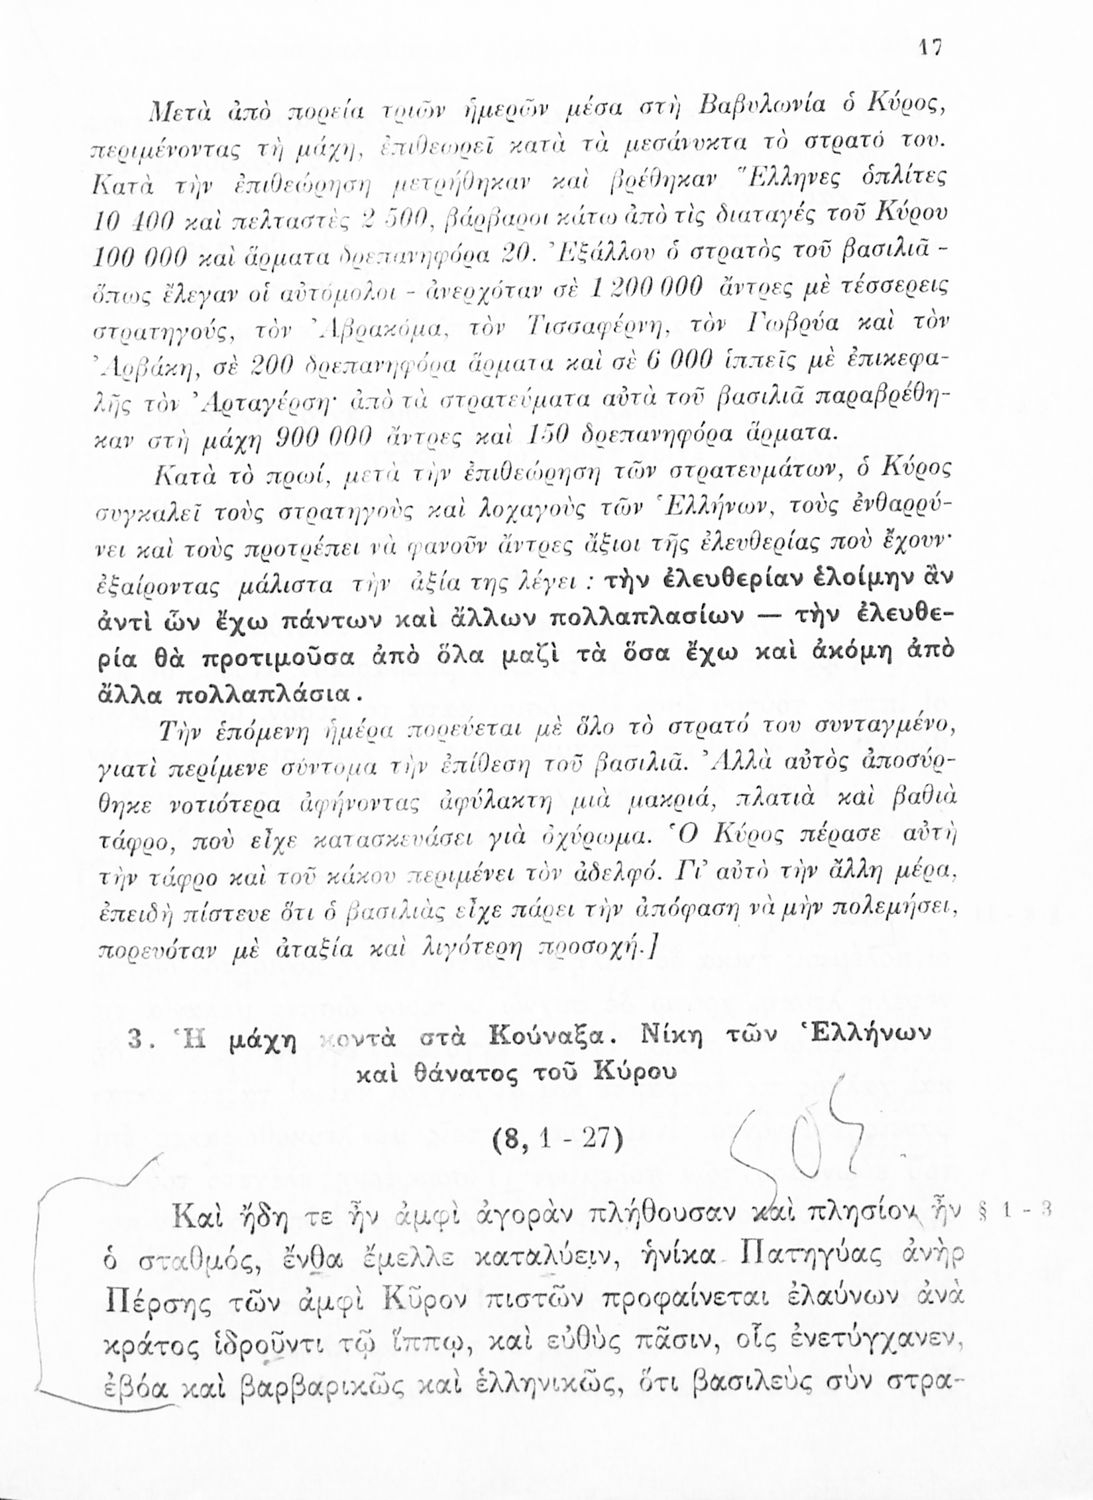 17
Μετὰ ἀπὸ πορεία τριῶν ἡμερῶν μέσα στὴ Βαβυλωνία ὁ Κύρος,
περιμένοντας τὴ μάχη, ἐπιθεωρεῖ κατὰ τὰ μεσάνυκτα τὸ στρατό του.
Κατὰ τὴν ἐπιθεώρηση μετρήθηκαν καὶ βρέθηκαν Ἕλληνες ὁπλίτες
10 400 καὶ πελταστὲς 2 500, βάρβαροι κάτω ἀπὸ τὶς διαταγές τοῦ Κύρου
100 000 καὶ ἅρματα δρεπανηφόρα 20. Ἐξάλλου ὁ στρατὸς τοῦ βασιλιᾶ -
ὅπως ἔλεγαν οἱ αὐτόμολοι - ἀνερχόταν σὲ 1 200 000 ἄντρες μὲ τέσσερεις
στρατηγούς, τὸν Ἀβρακόμα, τὸν Τισσαφέρνη, τὸν Γωβρύα καὶ τὸν
Ἀρβάκη, σὲ 200 δρεπανηφόρα ἅρματα καὶ σὲ 6 000 ἱππεῖς μὲ ἐπικεφα-
λῆς τὸν Ἀρταγέρση· ἀπὸ τὰ στρατεύματα αὐτὰ τοῦ βασιλιᾶ παραβρέθη-
καν στὴ μάχη 900 000 ἄντρες καὶ 150 δρεπανηφόρα ἅρματα.
Κατὰ τὸ πρωί, μετὰ τὴν ἐπιθεώρηση τῶν στρατευμάτων, ὁ Κύρος
συγκαλεῖ τοὺς στρατηγοὺς καὶ λοχαγοὺς τῶν Ἑλλήνων, τοὺς ἐνθαρρύ-
νει καὶ τοὺς προτρέπει νὰ φανοῦν ἄντρες ἄξιοι τῆς ἐλευθερίας ποὺ ἔχουν·
ἐξαίροντας μάλιστα τὴν ἀξία της λέγει : τὴν ἐλευθερίαν ἑλοίμην ἂν
ἀντὶ ὧν ἔχω πάντων καὶ ἄλλων πολλαπλασίων — τὴν ἐλευθε-
ρία θὰ προτιμοῦσα ἀπὸ ὅλα μαζὶ τὰ ὅσα ἔχω καὶ ἀκόμη ἀπὸ
ἄλλα πολλαπλάσια.
Τὴν ἑπόμενη ἡμέρα πορεύεται μὲ ὅλο τὸ στρατό του συνταγμένο,
γιατὶ περίμενε σύντομα τὴν ἐπίθεση τοῦ βασιλιᾶ. Ἀλλὰ αὐτὸς ἀποσύρ-
θηκε νοτιότερα ἀφήνοντας ἀφύλακτη μιὰ μακριά, πλατιὰ καὶ βαθιὰ
τάφρο, ποὺ εἶχε κατασκευάσει γιὰ ὀχύρωμα. Ὁ Κύρος πέρασε αὐτὴ
τὴν τάφρο καὶ τοῦ κάκου περιμένει τὸν ἀδελφό. Γι' αὐτὸ τὴν ἄλλη μέρα,
ἐπειδὴ πίστευε ὅτι ὁ βασιλιὰς εἶχε πάρει τὴν ἀπόφαση νὰ μὴν πολεμήσει,
πορευόταν μὲ ἀταξία καὶ λιγότερη προσοχή.]
3. Ἡ μάχη κοντὰ στὰ Κούναξα. Νίκη τῶν Ἑλλήνων
καὶ θάνατος τοῦ Κύρου
(8, 1 - 27)
SOS.
Καὶ ἤδη τε ἦν ἀμφὶ ἀγορὰν πλήθουσαν καὶ πλησίον ἦν § 1 - 3
ὁ σταθμός, ἔνθα ἔμελλε καταλύειν, ἡνίκα Πατηγύας ἀνὴρ
Πέρσης τῶν ἀμφὶ Κῦρον πιστῶν προφαίνεται ἐλαύνων ἀνὰ
κράτος ἱδροῦντι τῷ ἵππῳ, καὶ εὐθὺς πᾶσιν, οἷς ἐνετύγχανεν,
ἐβόα καὶ βαρβαρικῶς καὶ ἑλληνικῶς, ὅτι βασιλεὺς σὺν στρα-